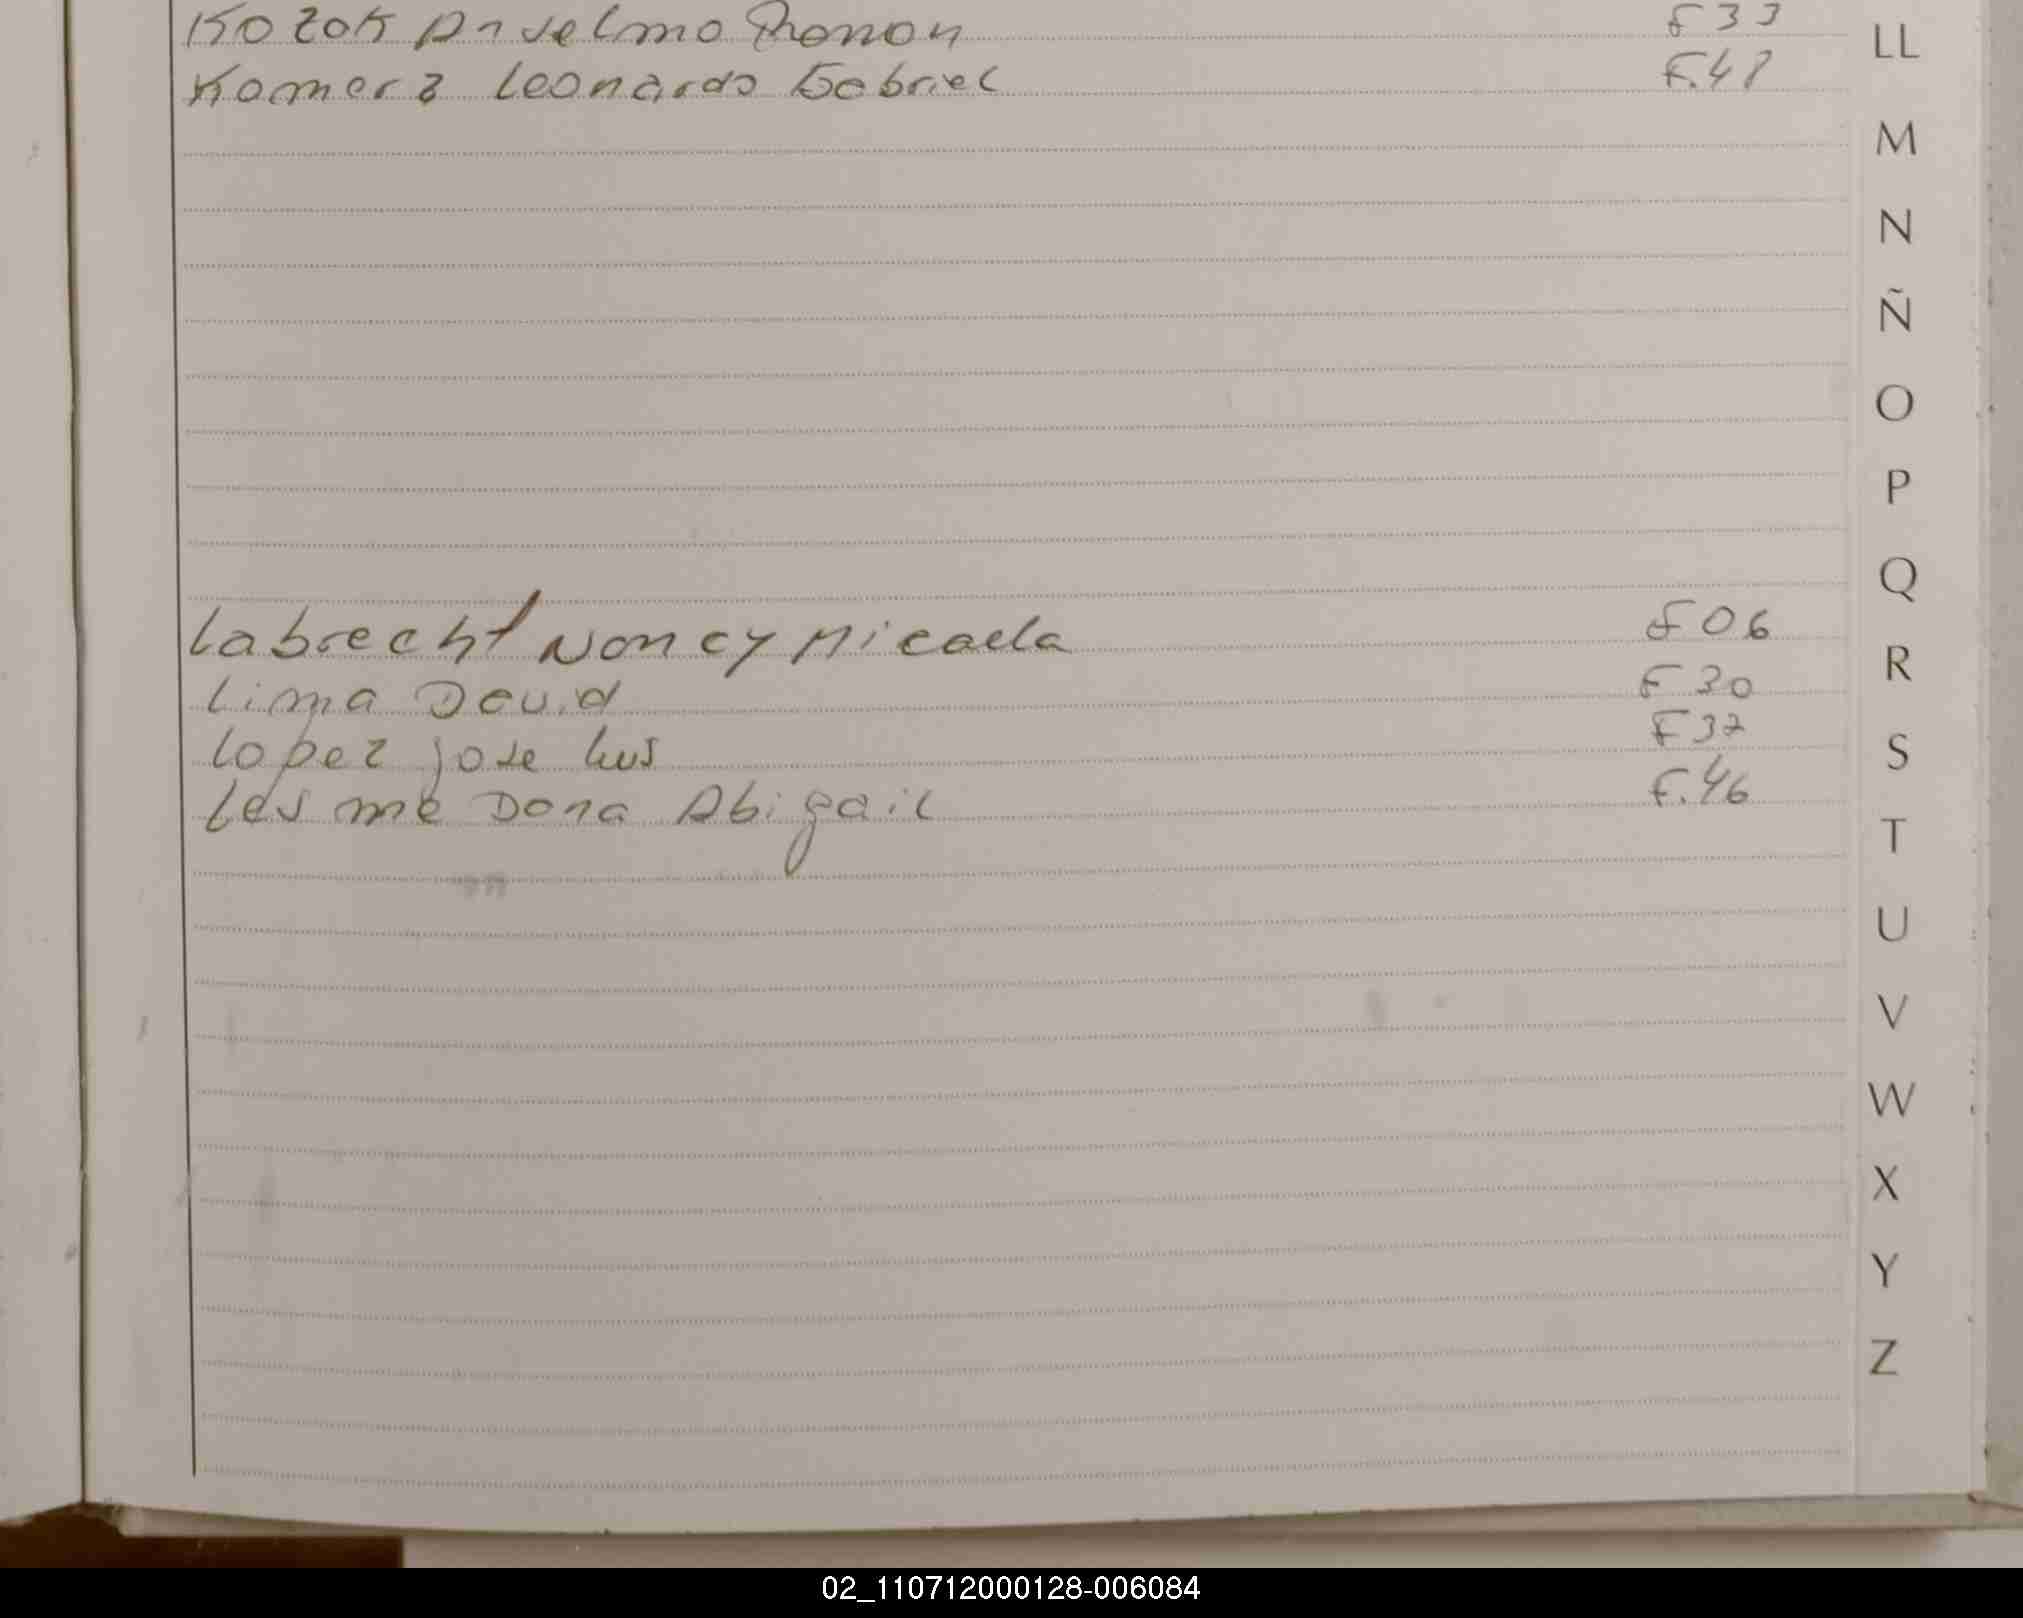 Kozok Anselmo Ramon F 33
LL
Komerz Leonardo Gabriel F.47
M
N
Ñ
O
P
Q
Labrecht Nancy Micaela F 06
R
Lima David F 30
Lopez jose luis F 37
S
Lesme Dana Abigail F.46
T
U
V
W
X
Y
Z
02_110712000128-006084